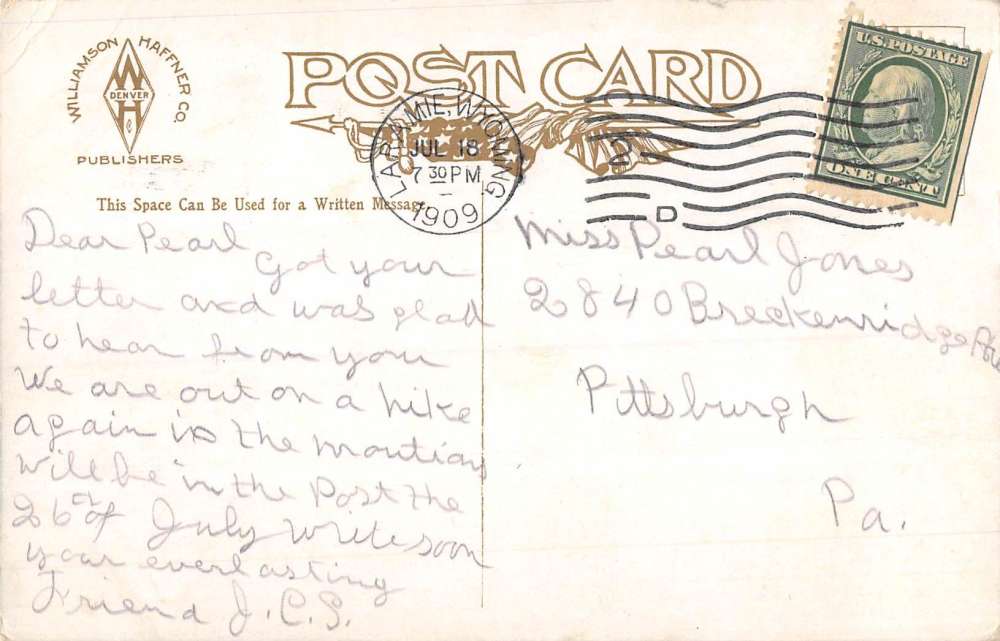 WILLIAMSON HAFFNER CO.
W
DENVER
H
Co
PUBLISHERS
POST CARD
LARAMIE, WYOMING
JUL 18
7 30 PM
1909
2
D
U.S. POSTAGE
ONE CENT
This Space Can Be Used for a Written Message
Dear Pearl
Got your
letter and was glad
to hear from you
We are out on a hike
again in the moutians
will be in the Post the
26th of July write soon
your everlasting
Friend J.C.S.
Miss Pearl Jones
2840 Breckenridge Ave
Pittsburgh
Pa.